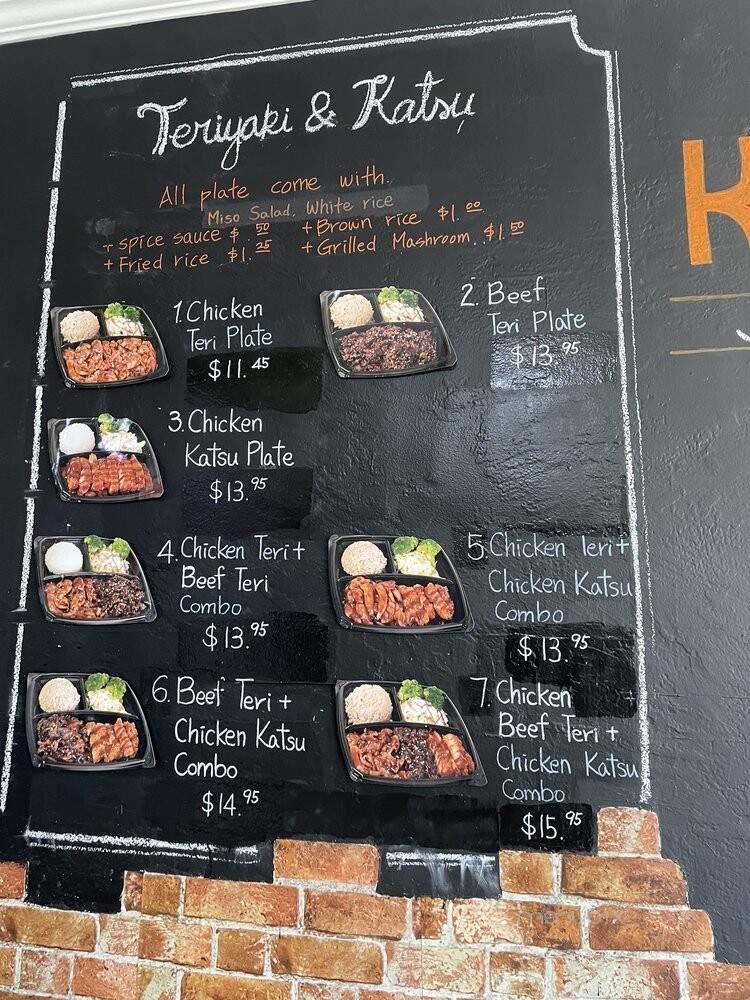 Teriyaki & Katsu
All plate come with.
Miso Salad. White rice
+ spice sauce $ .50
+ Brown rice $1.00
+ Fried rice . $1.25
+ Grilled Mashroom. $1.50
1. Chicken
Teri Plate
$11.45
2. Beef
Teri Plate
$13.95
3. Chicken
Katsu Plate
$13.95
4. Chicken Teri +
Beef Teri
Combo
$13.95
5. Chicken Teri +
Chicken Katsu
Combo
$13.95
6. Beef Teri +
Chicken Katsu
Combo
$14.95
7. Chicken
Beef Teri +
Chicken Katsu
Combo
$15.95